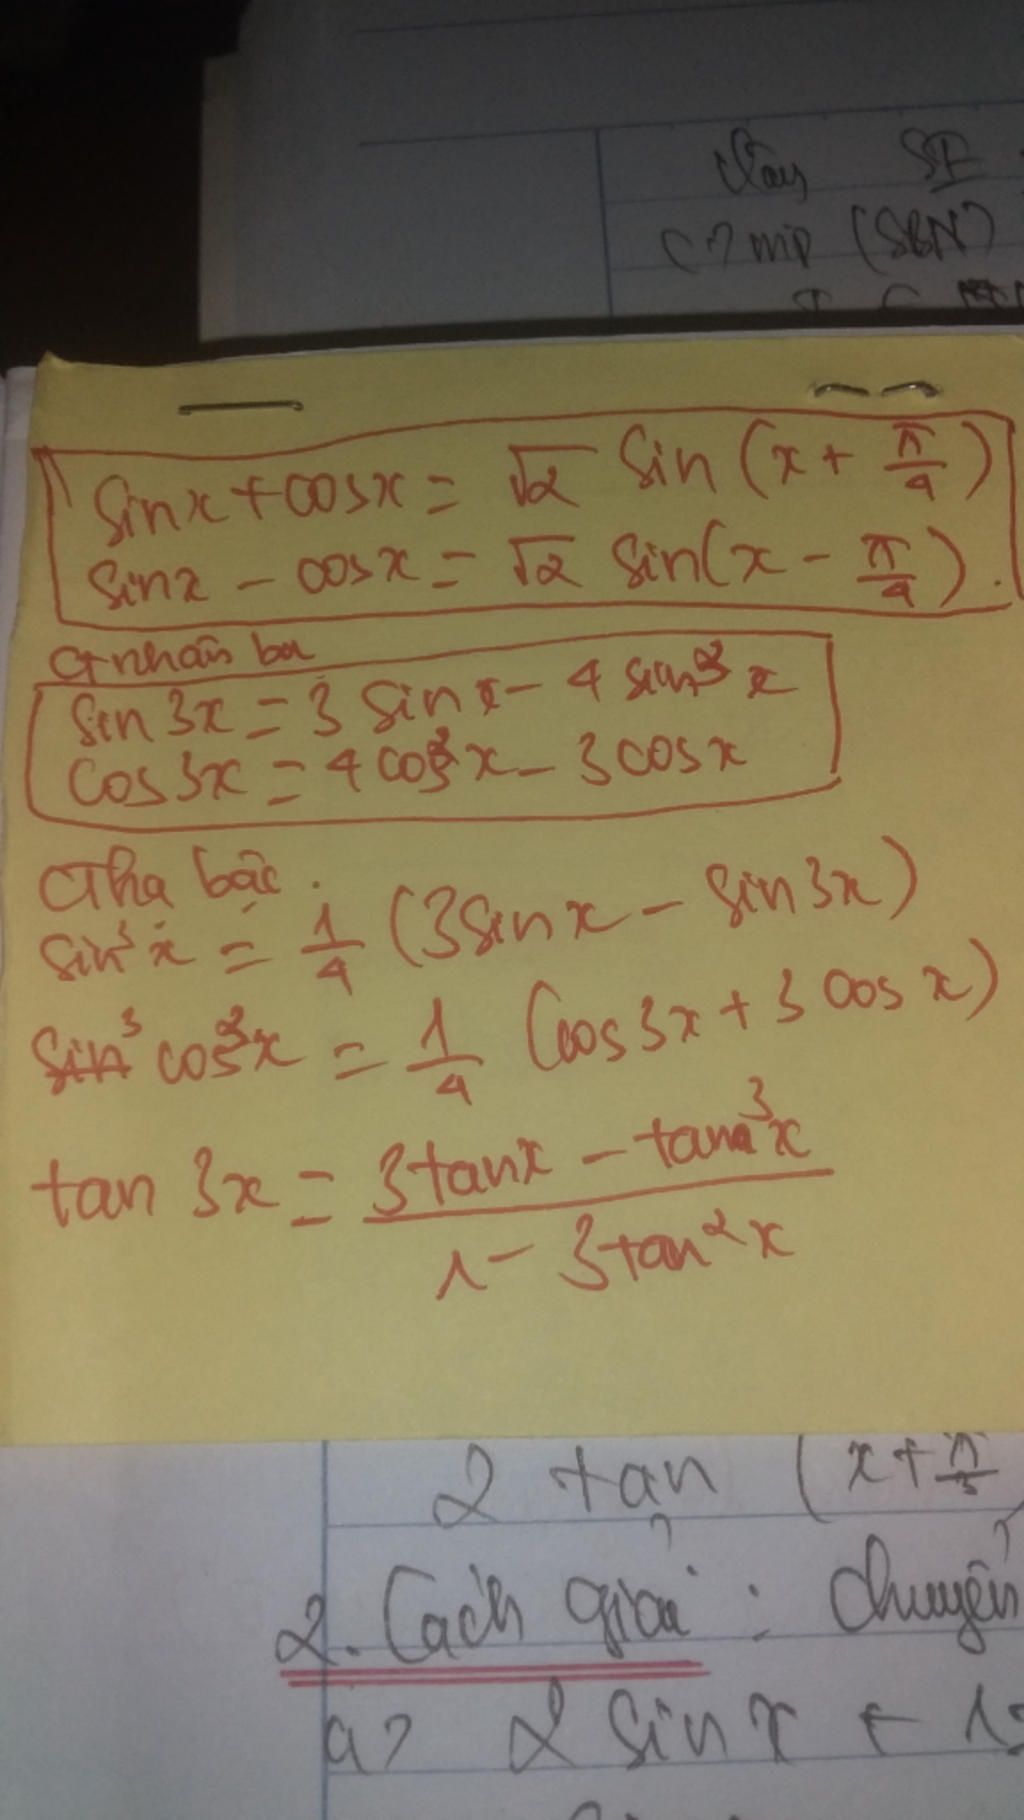 dãy SE
c> mp (SBN)
sinx + cosx = √2 sin (x + π/4)
sinx - cosx = √2 sin(x - π/4).
CT nhân ba
sin 3x = 3 sin x - 4 sin³ x
cos 3x = 4 cos³ x - 3 cos x
CT hạ bậc.
sin³ x = 1/4 (3 sin x - sin 3x)
sin³ cos³x = 1/4 (cos 3x + 3 cos x)
tan 3x = (3 tan x - tan³ x) / (1 - 3 tan² x)
2 tan (x + π/3
2. Cách giải : chuyển
a> 2 sin x + 1